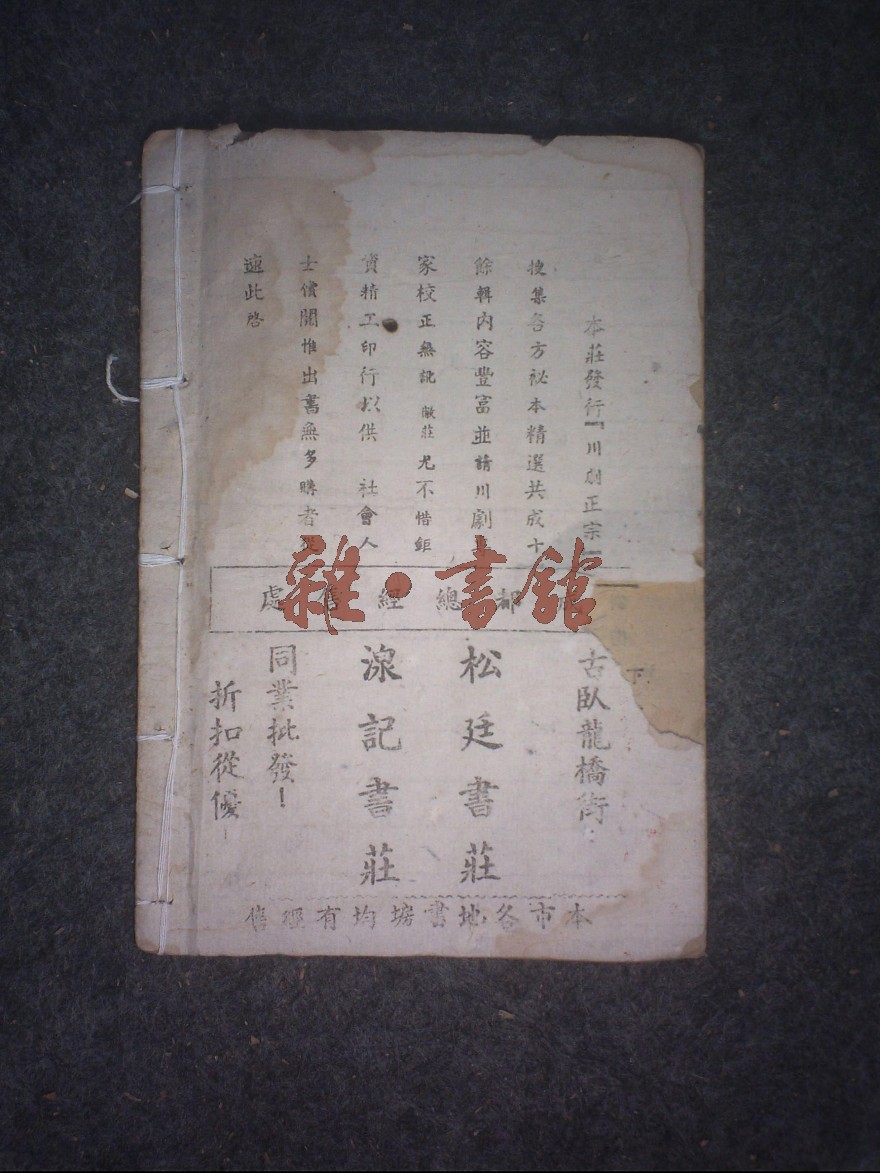 本莊發行「川劇正宗」
搜集各方祕本精選共成十
餘輯內容豐富並請川劇
家校正無訛敝莊尤不惜鉅
資精工印行以供 社會人
士償閱惟出書無多購者從
速此啓
都總經售處
古臥龍橋街
松廷書莊
湶記書莊
同業批發！
折扣從優
本市各地書塲均有經售
雜·書館